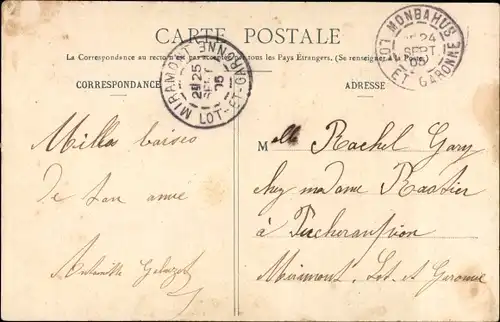 CARTE POSTALE
La Correspondance au recto n'est pas acceptée par tous les Pays Étrangers. (Se renseigner à la Poste.)
CORRESPONDANCE
ADRESSE
MIRAMONT LOT-ET-GARONNE
25
SEPT
05
MONBAHUS LOT ET GARONNE
24
SEPT
05
Milles baisers
De ton amie
Melle Rachel Gary
chez madame Rastier
à
Miramont, Lot et Garonne